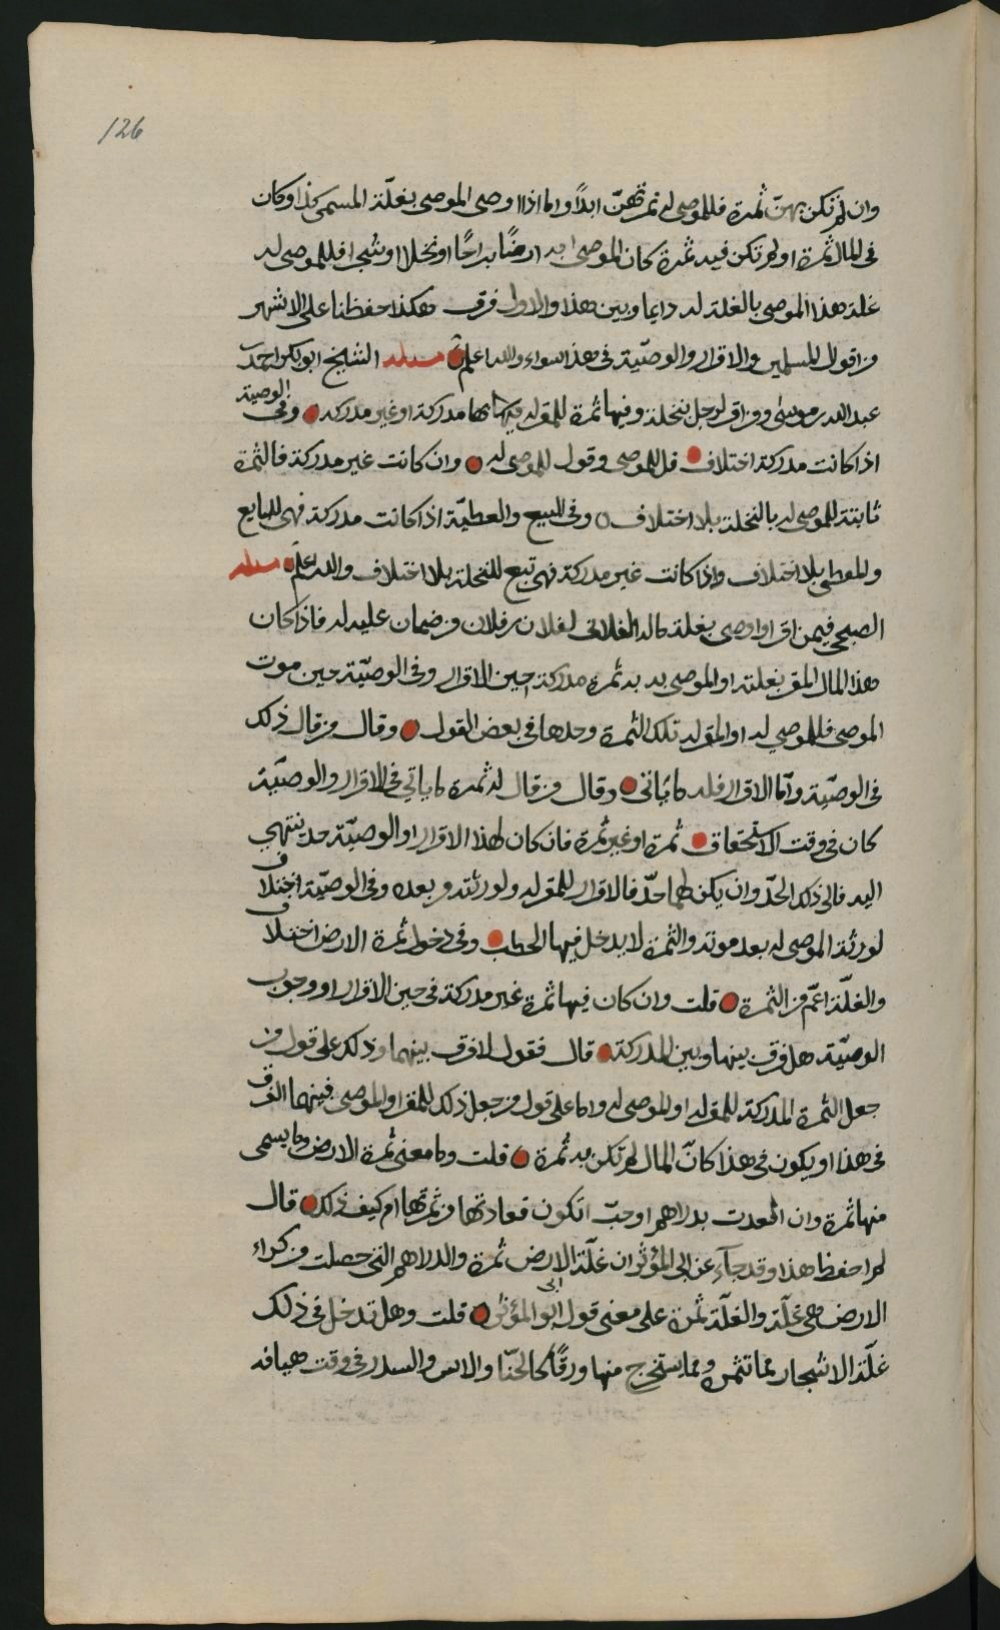 126
وان لم تكن بهنّ ثمرة فللموصى له ثمرتهنّ ابدًا واما اذا اوصى الموصى بغلّة المسمى كذا وكان
فى المال ثمرة او لم تكن فيه ثمرة كان الموصى به ارضًا براحًا او نخلا او شجرا فللموصى له
غلة هذا الموصى بالغلة له دايما وبين هذا والاول فرق هكذا حفظنا على الاشهر
من اقوال المسلمين والاقرار والوصيّة فى هذا سواء والله اعلم مسئلة الشيخ ابو بكر احمد
عبد الله بن موسى ومن اقر لرجل بنخلة وفيها ثمرة للمقر له فيها كانها مدركة او غير مدركة وفى الوصية
اذا كانت مدركة اختلاف قول للموصى وقول للموصى له وان كانت غير مدركة فالثمرة
ثابتة للموصى له بالنخلة بلا اختلاف وفى البيع والعطيّة اذا كانت مدركة فهى للبايع
والمعطى بلا اختلاف واذا كانت غير مدركة فهى تبع للنخلة بلا اختلاف والله اعلم مسئلة
الصبحى فيمن اقر او اوصى بغلة ماله الفلانى لفلان بن فلان من ضمان عليه له فاذا كان
هذا المال المقر بغلته او الموصى به به ثمرة مدركة حين الاقرار وفى الوصيّة حين موت
الموصى فللموصي له او المقر له تلك الثمرة وحدها فى بعض القول وقال من قال ذلك
فى الوصيّة وأما الاقرار فله ما يأتى وقال من قال له ثمرة ما ياتي فى الاقرار والوصيّة
كان فى وقت الاستحقاق ثمرة او غير ثمرة فان كان لهذا الاقرار او الوصيّة حد ينتهى
اليه فالى ذلك الحدّ وان يكن لهما حدّ فالاقرار للمقر له ولورثته من بعده وفى الوصيّة اختلاف
لورثة الموصى له بعد موته والثمرة لا يدخل فيها الحطب وفى دخول ثمرة الارض اختلاف
والغلّة اعمّ من الثمرة قلت وان كان فيها ثمرة غير مدركة فى حين الاقرار او وجوب
الوصيّة هل فرق بينها وبين المدركة قال فقول لا فرق بينهما وذلك على قول من
جعل الثمرة المدركة للمقر له او الموصى له واما على قول من جعل ذلك للمقر او الموصى فبينهما الفرق
فى هذا او يكون فى هذا كانّ المال لم تكن به ثمرة قلت وما معنى ثمرة الارض وما يسمى
منها ثمرة وان اقعدت بدراهم او حبّ اتكون قعادتها من ثمرتها ام كيف ذلك قال
لم احفظ هذا وقد جآء عن ابى المؤثر ان غلّة الارض ثمرة والدراهم التى حصلت من كراء
الارض هى غلّة والغلّة ثمرة على معنى قول ابو ابى المؤثر قلت وهل تدخل فى ذلك
غلّة الاشجار مما تثمر ومما يستخرج منها ورقًا كالحنّا والاس والسدر فى وقت هيافه